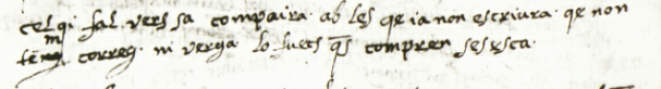 cel qi fal vers sa compaira ab les qe ia non escriura qe non
correg ni verga lo fuers q̄s compren